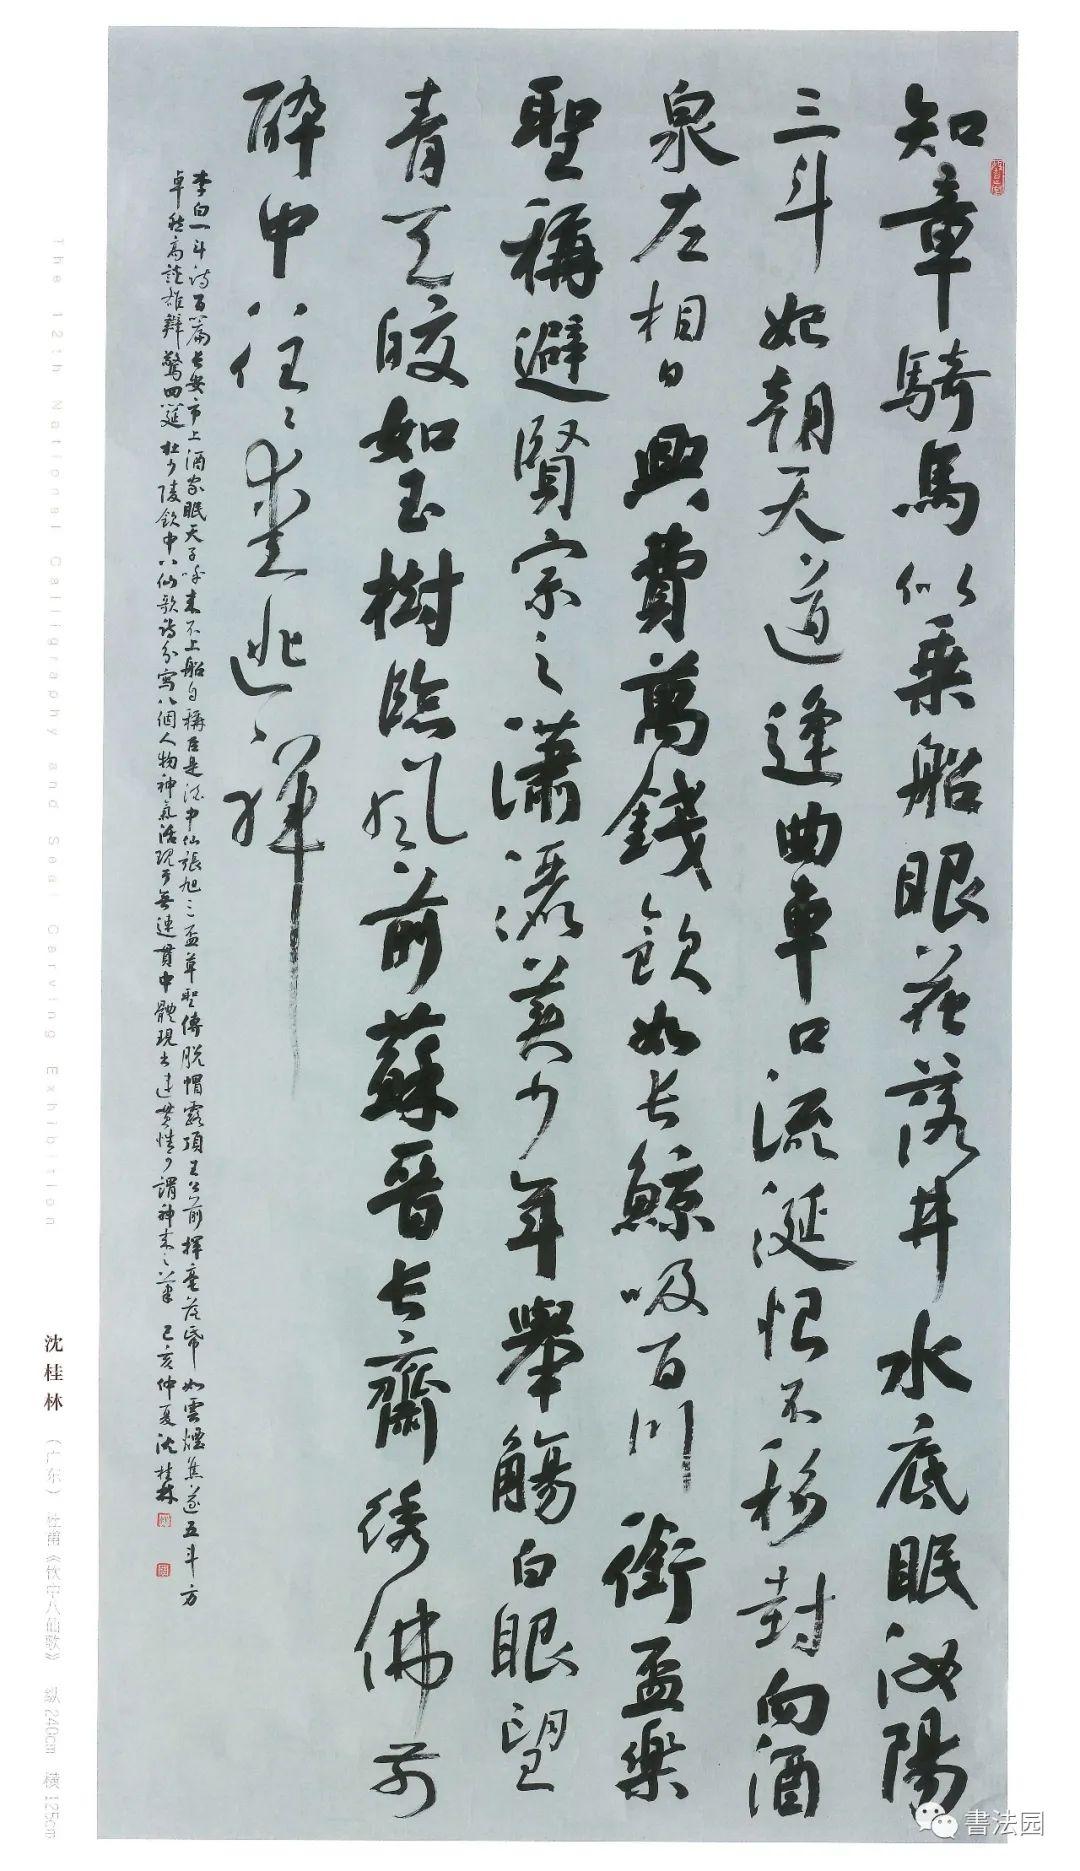 知章騎馬似乘船眼花落井水底眠汝陽
三斗始朝天道逢曲車口流涎恨不移封向酒
泉左相日興費萬錢飲如長鯨吸百川銜盃樂
聖稱避賢宗之瀟灑美少年舉觴白眼望
青天皎如玉樹臨風前蘇晉長齋綉佛前
醉中往往愛逃禪
李白一斗詩百篇長安市上酒家眠天子呼來不上船自稱臣是酒中仙張旭三盃草聖傳脫帽露頂王公前揮毫落紙如雲煙焦遂五斗方
卓然高談雄辯驚四筵 杜少陵飲中八仙歌詩分寫八個人物神氣活現於無連貫中體現出連貫情可謂神來之筆 己亥仲夏沈桂林
The 12th National Calligraphy and Seal Carving Exhibition
沈桂林 （广东） 杜甫《饮中八仙歌》 纵240cm 横125cm
書法园